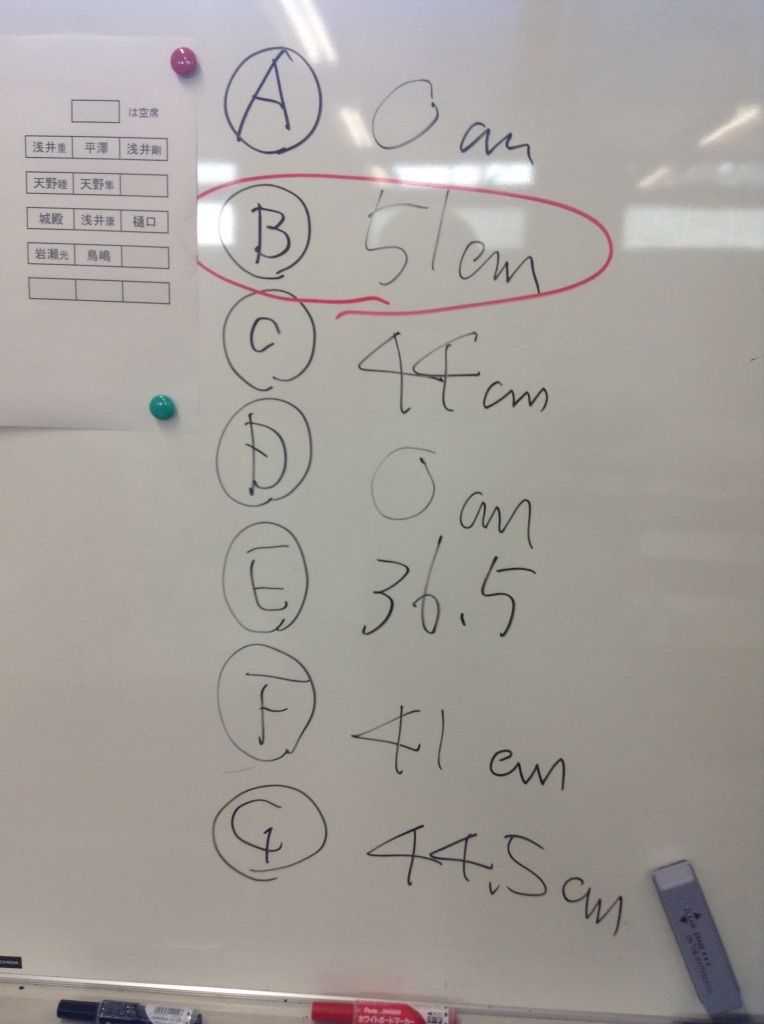 は空席
浅井重 平澤 浅井剛
天野睦 天野隼
城殿 浅井康 樋口
岩瀬光 鳥嶋
A 0cm
B 51cm
C 44cm
D 0cm
E 36.5
F 41cm
G 44.5cm
Pentel
ホワイトボードマーカー